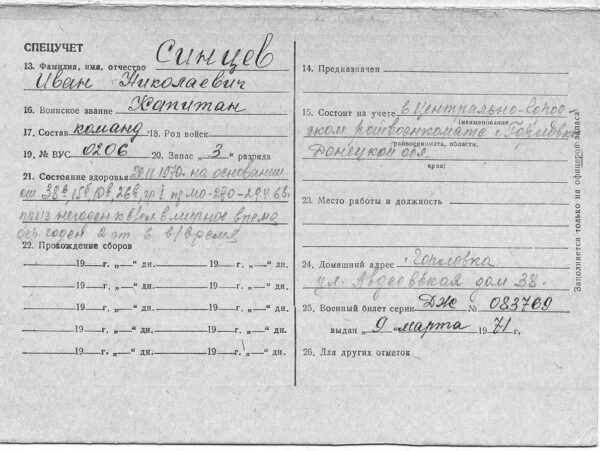 СПЕЦУЧЕТ
13. Фамилия, имя, отчество Синцев
Иван Николаевич
16. Воинское звание Капитан
17. Состав команд 18. Род войск
19. № ВУС 0206 20. Запас „3“ разряда
21. Состояние здоровья XII 1970 на основании
ст. 38
годен 2 ст. в в/время
22. Прохождение сборов
19 г. „ “ дн. 19 г. „ “ дн.
19 г. „ “ дн. 19 г. „ “ дн.
19 г. „ “ дн. 19 г. „ “ дн.
19 г. „ “ дн. 19 г. „ “ дн.
19 г. „ “ дн. 19 г. „ “ дн.
14. Предназначен
15. Состоит на учете в Центрально-Город-
(наименование
ском райвоенкомате г. Горловка
райвоенкомата, области,
Донецкой обл.
края)
23. Место работы и должность
24. Домашний адрес г. Горловка
ул. Авдеевская дом 38.
25. Военный билет серии ДЖ № 083769
выдан „ 9 “ марта 1971 г.
26. Для других отметок
Заполняется только на офицеров запаса